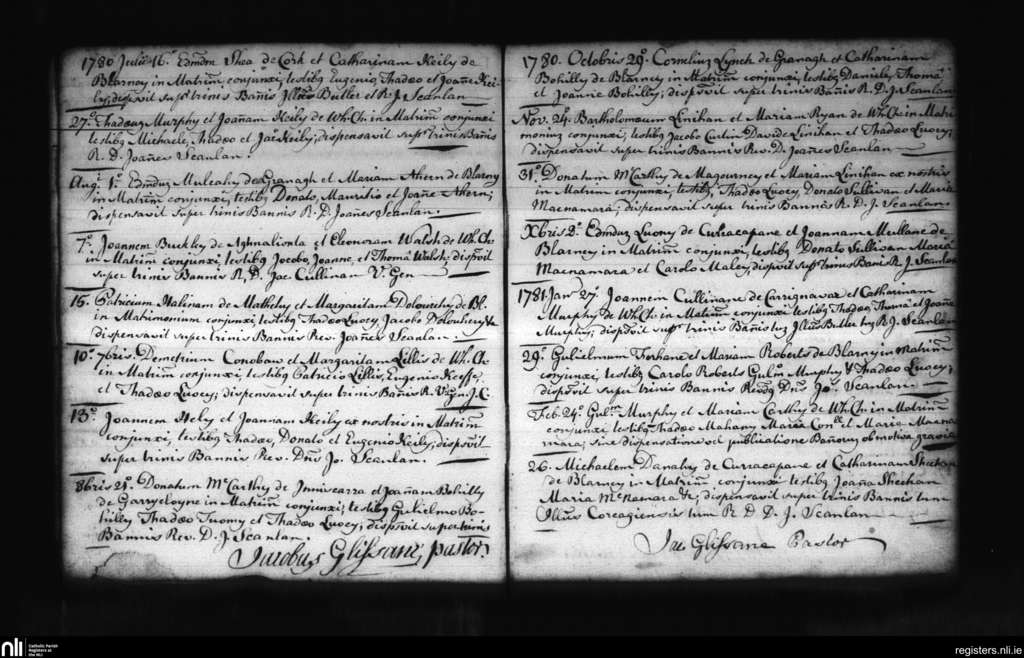 1780 Julii 16º Edmdm Shea de Cork et Catharinam Keily de
Blarney in Matrim̃ conjunxi, testibq Eugenio Thadæo et Joañe Kei-
ly, dispsvit supr trinis Bañis Illmo Butler et R. J. Scanlan
27º Thadæum Murphy et Joañam Keily de Wh.Ch. in Matrim̃ conjunxi
testibq Michaele, Thadæo et Jac Keily, dispensavit supr trinis Bañis
R. D. Joañes Scanlan.
Augi. 1º. Edmduz Mulcahy de Granagh et Mariam Ahern de Blarny
in Matrim̃ conjunxi, testibq Donato, Mauritio et Joañe Ahern;
dispensavit super trinis Bannis R. D. Joañes Scanlan.
7º. Joannem Buckley de Aghnalionta et Eleonoram Walsh de Wh.Ch.
in Matrim̃ conjunxi, testibq Jacobo, Joanne, et Thoma Walsh, dispsvit
super trinis Bannis R. D. Jac Cullinan V. Gen
15. Patricium Halinam de Mathehy et Margaritam Dolouchty de Bl.
in Matrimonium conjunxi, testibq Thadæo Lucey, Jacobo Doloughery &c
dispensavit super trinis Bannis Rev. Joañes Scanlan.
10º 7bris. Demetrium Conohan et Margaritam Lillis de Wh.Ch.
in Matrim̃ conjunxi, testibq Patricio Lillis, Eugenio Keeffe,
et Thadæo Lucey; dispensavit super trinis Bañis R. J.C.
13º. Joannem Hely et Joannam Keily ex nostris in Matrim̃
conjunxi, testibq Thadæo, Donato et Eugenio Keily, dispsvit
super trinis Bannis Rev. Dñs Jo. Scanlan.
8bris 21º. Donatum McCarthy de Inniscarra et Joañam Bohilly
de Garrycloyne in Matrim̃ conjunxi; testibq Gulielmo Bo-
hilley Thadæo Tuomy et Thadæo Lucey; dispsvit super trinis
Bannis Rev. D. J. Scanlan.
Jacobus Glissane, pastor.
1780. Octobris 29º. Cornelius Lynch de Granagh et Catharinam
Bohilly de Blarney in Matrim̃ conjunxi, testibq Daniele, Thoma
et Joanne Bohilly; dispsvit super trinis Bañis R. D. J. Scanlan
Nov. 24. Bartholomæum Linihan et Mariam Ryan de Wh.Ch. in Matri
monium conjunxi, testibq Jacobo Curtin Davide Linihan et Thadæo Lucey;
dispensavit super trinis Bannis Rev. D. Joañes Scanlan
31º Donatum McCarthy de Magourney et Mariam Linihan ex nostris
in Matrim̃ conjunxi, testibq Thadæo Lucey Donato Sullivan et Maria
Macnamara; dispensavit super trinis Bannis R. D. J. Scanlan.
Xbris 2º. Edmduz Luony de Curracapane et Joannam Mullane de
Blarney in Matrim̃ conjunxi, testibq Donato Sullivan Maria
Macnamara et Carolo Maley, dispsvit supr trinis Bañis R. J. Scanlan
1781 Janr 27. Joannem Cullinane de Carrignavar et Catharinam
Murphy de Wh.Ch. in Matrim̃ conjunxi testibq Thadæo Thoma et Joañe
Murphy; dispsvit supr trinis Bañis Illmo Butler R. J. Scanlan
29º. Gulielmum Forhane et Mariam Roberts de Blarny in Matrim̃
conjunxi, testibq Carolo Roberts Gulm Murphy & Thadæo Lucey;
dispsvit super trinis Bannis Revdq Dñs Jo. Scanlan
Feb. 24º. Gulm. Murphy et Mariam Carthy de Wh.Ch. in Matrim̃
conjunxi, testibq Thadæo Mahany Maria et Maria Macna
mara; sine dispensatione vel publicatione Bañorum ob motiva gravia
26. Michaelem Danahy de Curracapane et Catharinam Sheehan
de Blarney in Matrim̃ conjunxi testibq Joaña Sheehan
Maria McNamara &c; dispensavit super trinis Bannis tum
Illmus Corcagiensis tum R D D. J. Scanlan
Jac Glissane Pastor
nli
Catholic Parish
Registers at
the NLI
registers.nli.ie